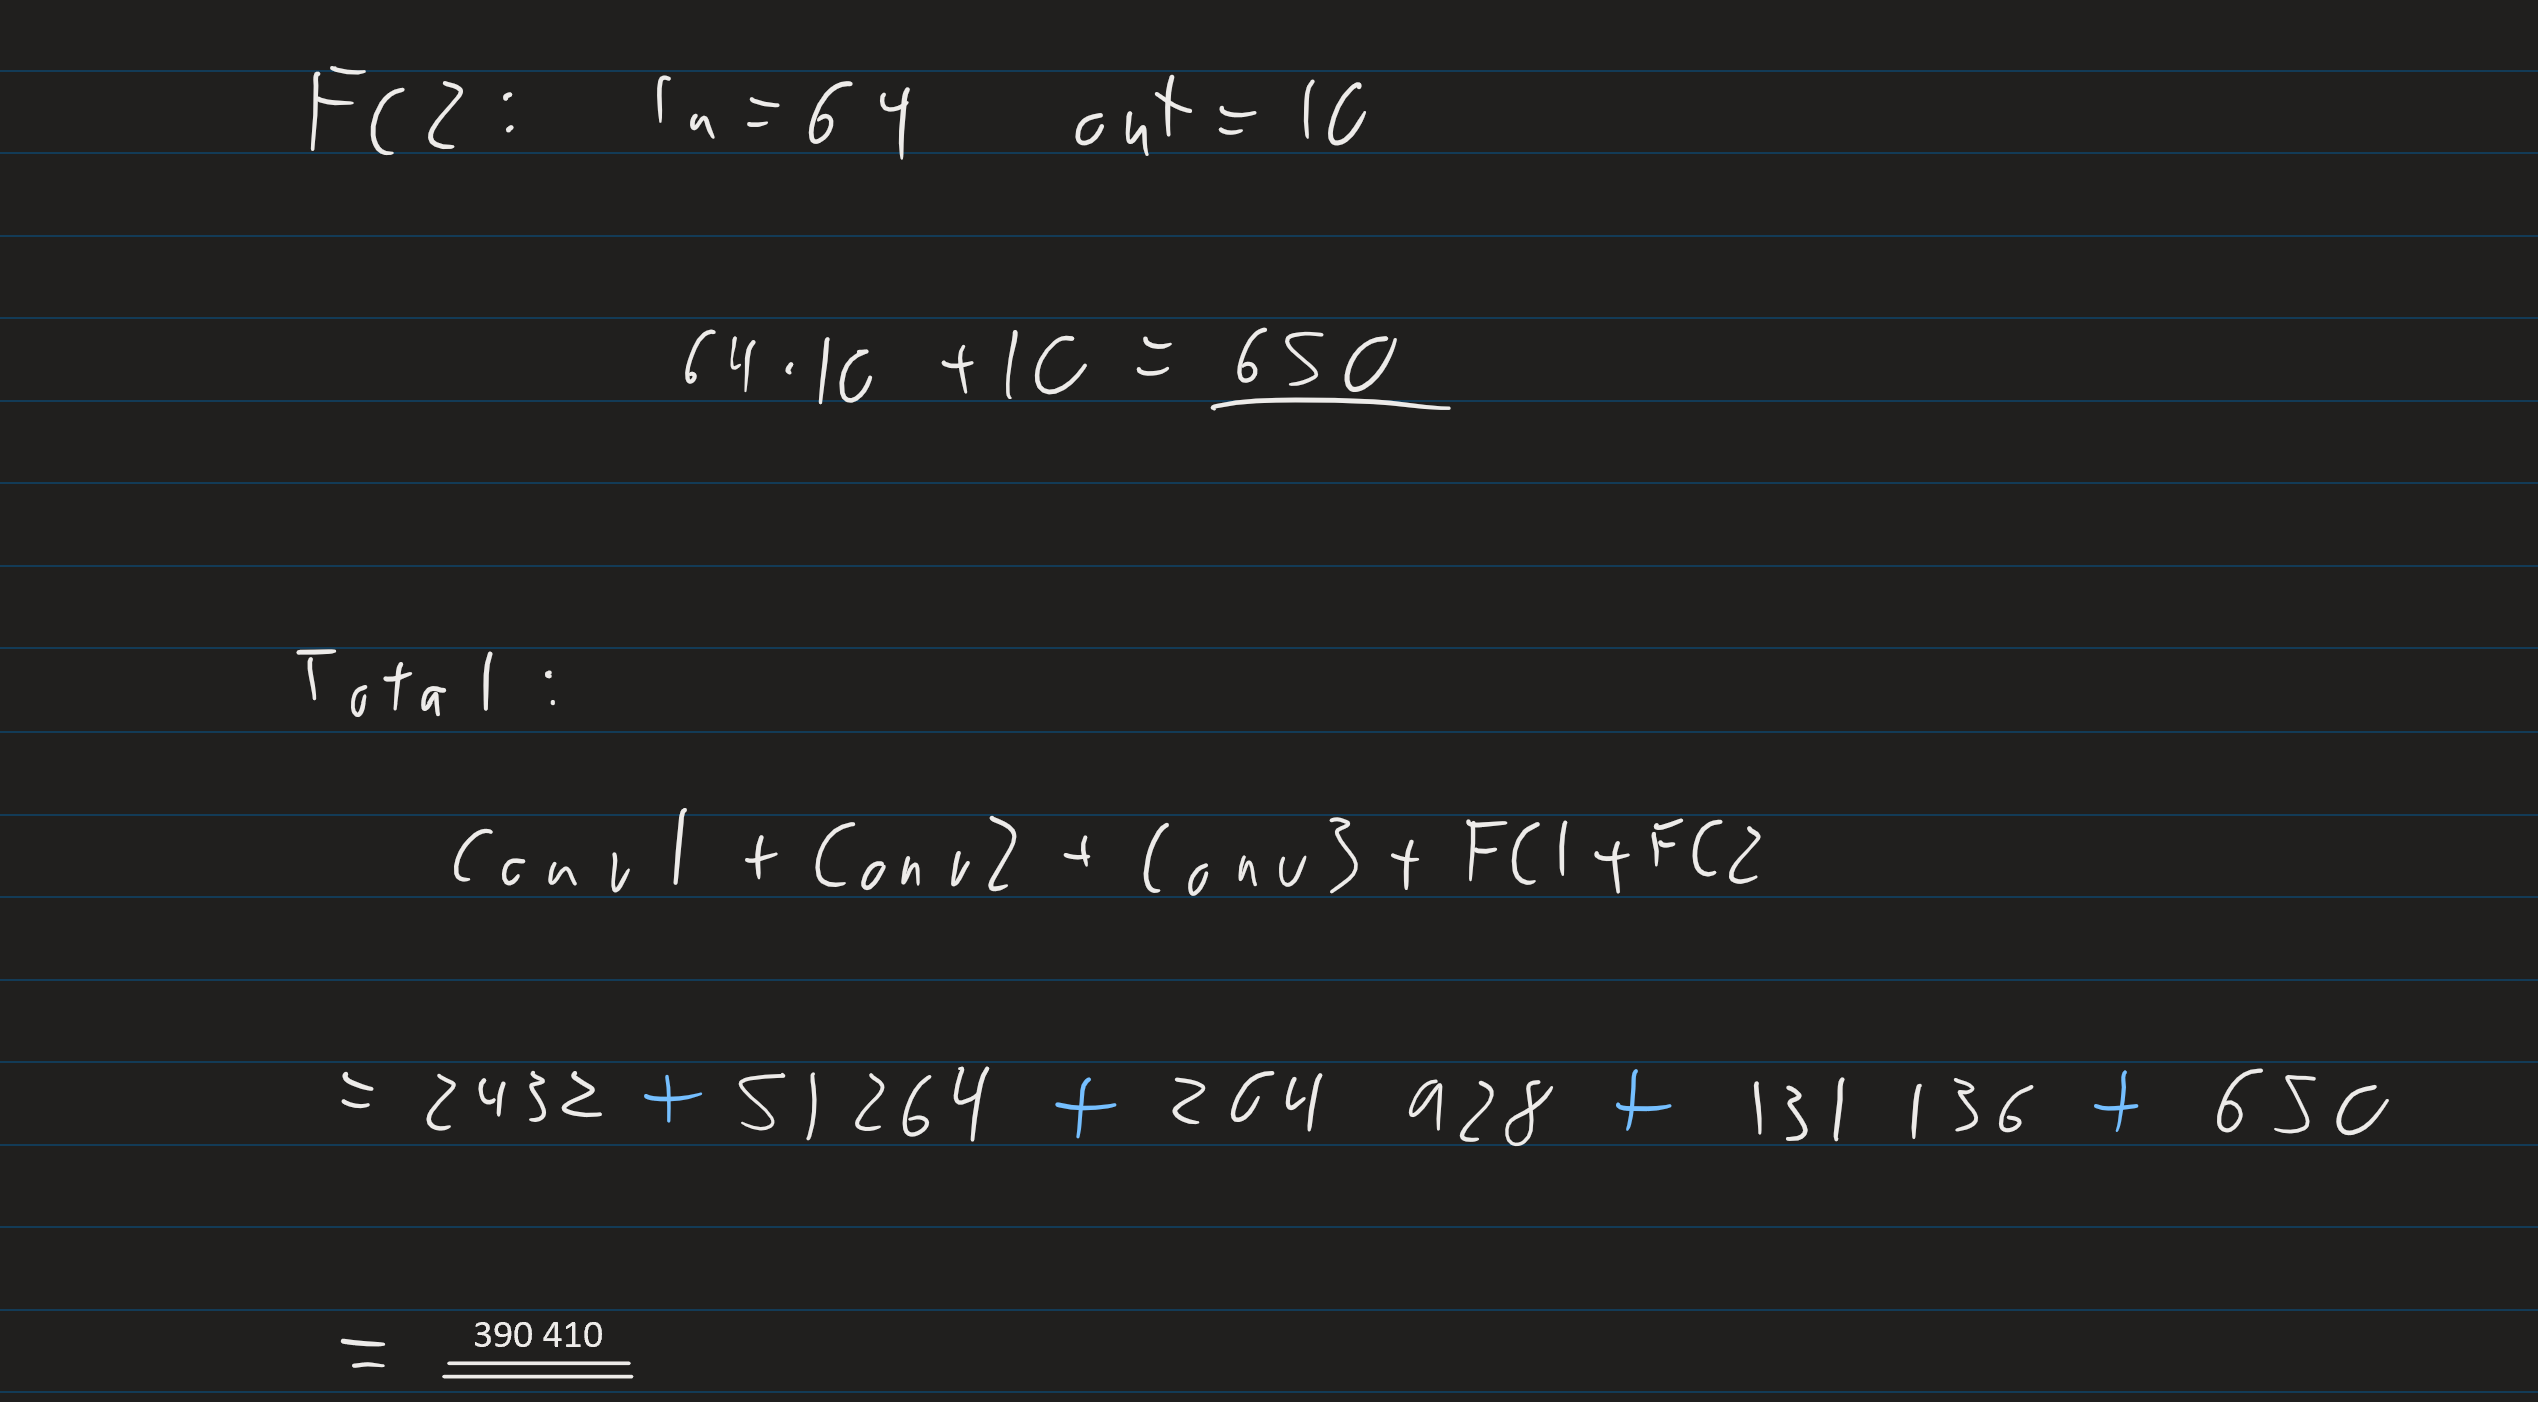 FC2: In = 64 out = 10
64 · 10 + 10 = 650
Total :
Conv1 + Conv2 + Conv3 + FC1 + FC2
= 2432 + 51264 + 204 928 + 131 136 + 650
= 390 410